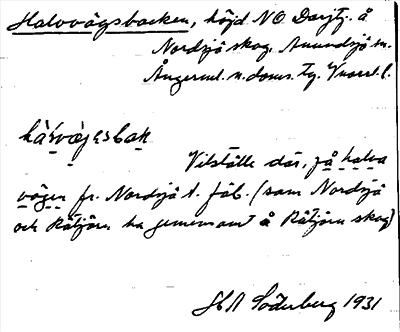 Halvvägsbacken, höjd NO Darjtj. å
Nordsjö skog. Anundsjö sn.
Ångerml. n. doms. tg. Vnorrl. l.
hàḷvæjesbak
Vilställe där, på halva
vägen fr. Nordsjö t. fäb. (som Nordsjö
och Råtjärn ha gemensamt å Råtjärn skog)
H A Söderberg 1931